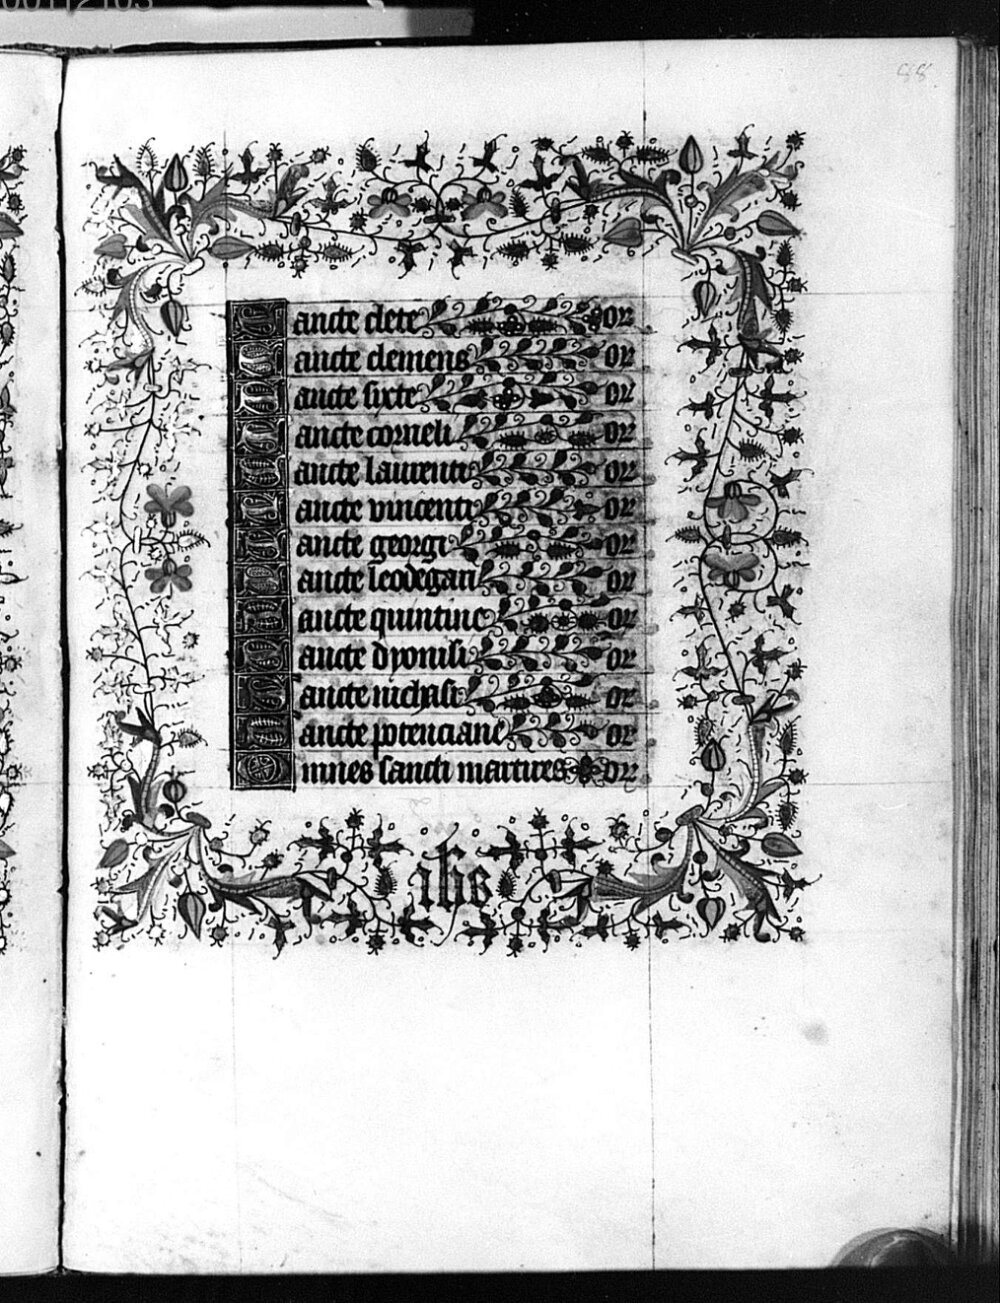 88
Sancte clete or
Sancte clemens or
Sancte sixte or
Sancte corneli or
Sancte laurenti or
Sancte vincenti or
Sancte georgi or
Sancte leodegari or
Sancte quintine or
Sancte dyonisi or
Sancte nichasi or
Sancte potenciane or
Omnes sancti martires or
ihs